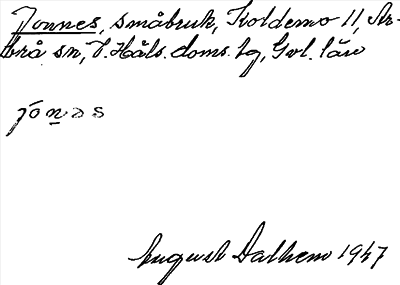 Jonnes, småbruk, Koldemo 11, Ar-
brå sn, V. Häls. doms. hg, Gvl. län
jónas
August Dalhem 1947